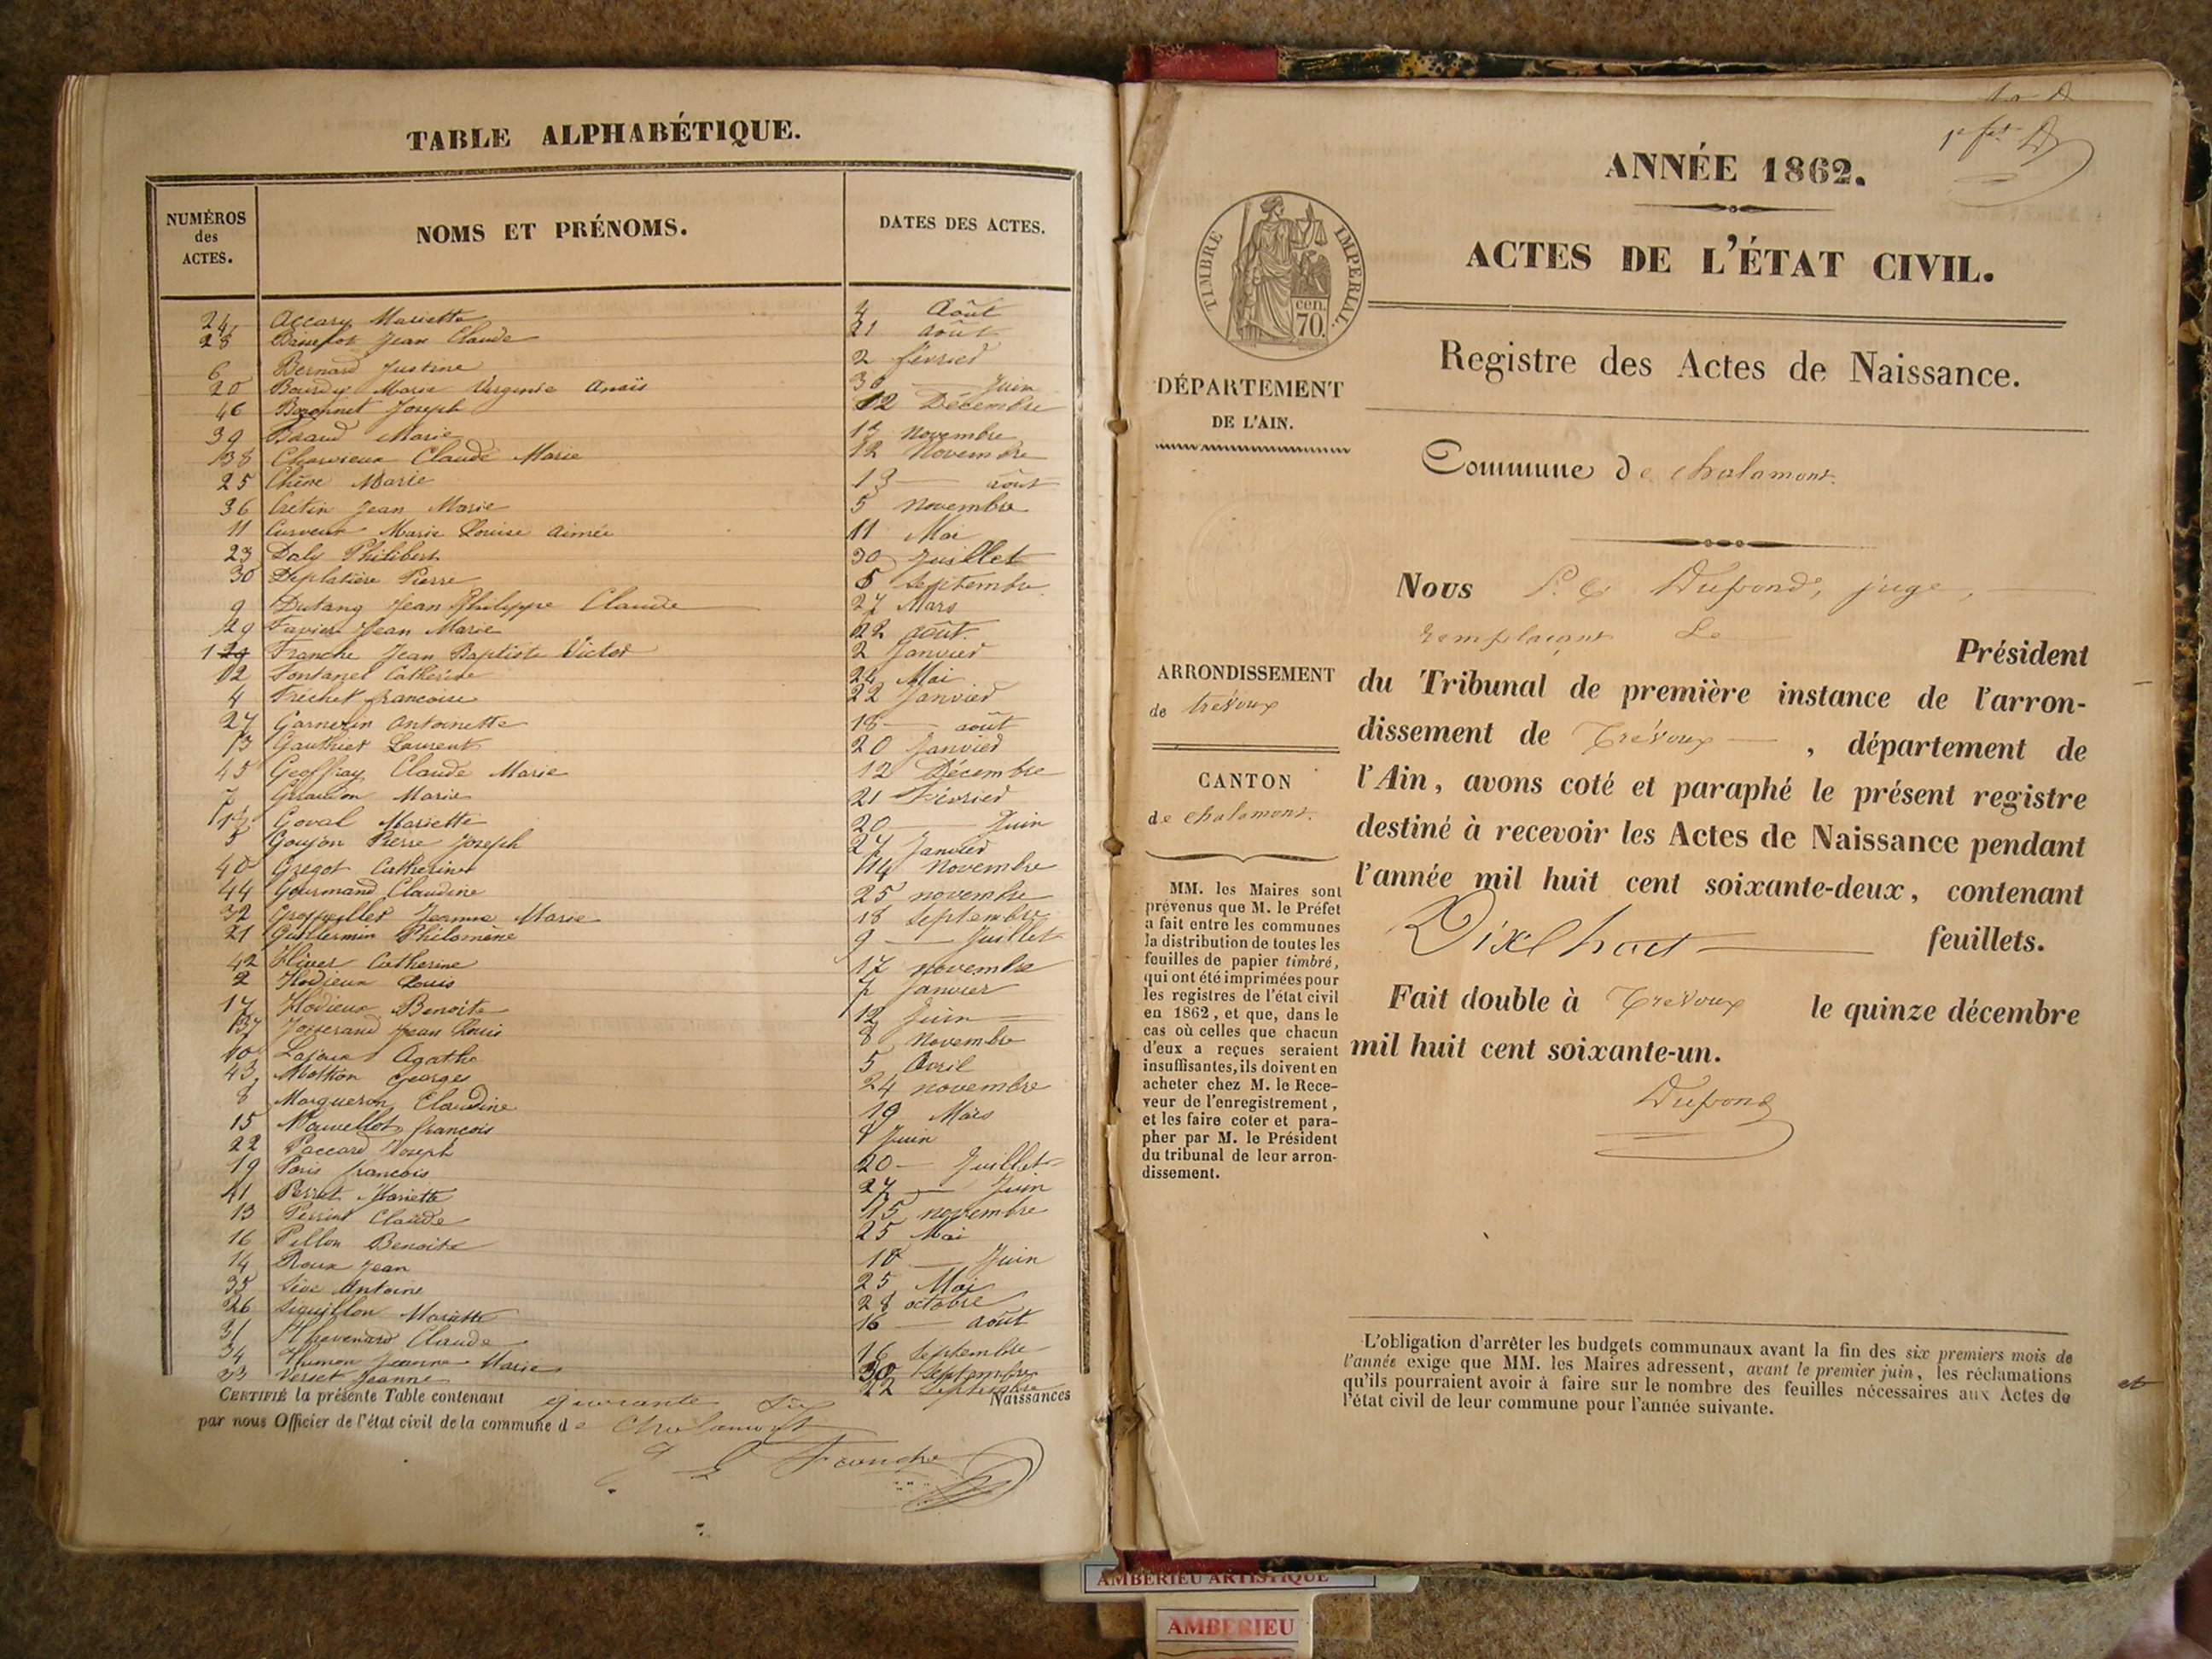 TABLE ALPHABÉTIQUE.
NUMÉROS
des
ACTES.
NOMS ET PRÉNOMS.
DATES DES ACTES.
24 Accary Mariette 4 Août
28 Jean Claude 21 août
6 Bernard Justine 2 février
20 Bourdy Marie Virginie Anaïs 30 Juin
46 Bozonnet Joseph 12 Décembre
39 Marie 17 Novembre
38 Charvieux Claude Marie 12 Novembre
25 Chêne Marie 13 août
36 Cretin Jean Marie 5 novembre
11 Curveur Marie Louise Aimée 11 Mai
23 Daly Philibert 30 Juillet
30 Deplatière Pierre 5 Septembre
9 Dutang Jean Philippe Claude 27 Mars
29 Favier Jean Marie 22 août
1 Franche Jean Baptiste Victor 2 Janvier
12 Fontanel Catherine 24 Mai
4 Frichet francoise 22 Janvier
27 Garnerin Antoinette 18 août
13 Gauthier Laurent 20 Janvier
45 Geoffray Claude Marie 12 Décembre
7 Marie 21 Février
Goval Mariette 20 Juin
5 Goujon Pierre Joseph 27 Janvier
40 Gregot Catherine 14 Novembre
44 Gourmand Claudine 25 novembre
32 Jeanne Marie 18 Septembre
21 Guillermin Philomène 9 Juillet
42 Hiver Catherine 17 novembre
2 Hodieux Louis 7 Janvier
17 Hodieux Benoite 12 Juin
37 Josserand Jean Louis 8 Novembre
10 Lajoux Agathe 5 Avril
43 Mathon Georges 24 novembre
8 Morgueron Claudine 19 Mars
15 Nouvellet françois Juin
22 Paccard Joseph 20 Juillet
19 Paris francois 27 Juin
41 Perret Mariette 15 novembre
13 Claude 25 Mai
16 Pillon Benoite 10 Juin
14 Roux Jean 25 Mai
35 Sève Antoine 28 octobre
26 Siquillon Mariette 16 août
31 Thevenard Claude 16 Septembre
34 Jeanne Marie 30 Septembre
33 Verset Jeanne 22 Septembre
CERTIFIÉ la présente Table contenant quarante six Naissances
par nous Officier de l'état civil de la commune de Chalamont
Franche
ANNÉE 1862.
TIMBRE IMPERIAL.
cen.
70.
ACTES DE L'ÉTAT CIVIL.
Registre des Actes de Naissance.
DÉPARTEMENT
DE L'AIN.
Commune de chalamont.
Nous Dupond, juge,
remplaçant Le Président
ARRONDISSEMENT
de trévoux
CANTON
de chalamont.
du Tribunal de première instance de l'arron-
dissement de Trévoux, département de
l'Ain, avons coté et paraphé le présent registre
destiné à recevoir les Actes de Naissance pendant
l'année mil huit cent soixante-deux, contenant
Dix huit feuillets.
Fait double à Trévoux le quinze décembre
mil huit cent soixante-un.
Dupond
MM. les Maires sont
prévenus que M. le Préfet
a fait entre les communes
la distribution de toutes les
feuilles de papier timbré,
qui ont été imprimées pour
les registres de l'état civil
en 1862, et que, dans le
cas où celles que chacun
d'eux a reçues seraient
insuffisantes, ils doivent en
acheter chez M. le Rece-
veur de l'enregistrement,
et les faire coter et para-
pher par M. le Président
du tribunal de leur arron-
dissement.
L'obligation d'arrêter les budgets communaux avant la fin des six premiers mois de
l'année exige que MM. les Maires adressent, avant le premier juin, les réclamations
qu'ils pourraient avoir à faire sur le nombre des feuilles nécessaires aux Actes de
l'état civil de leur commune pour l'année suivante.
AMBERIEU ARTISTIQUE
AMBERIEU